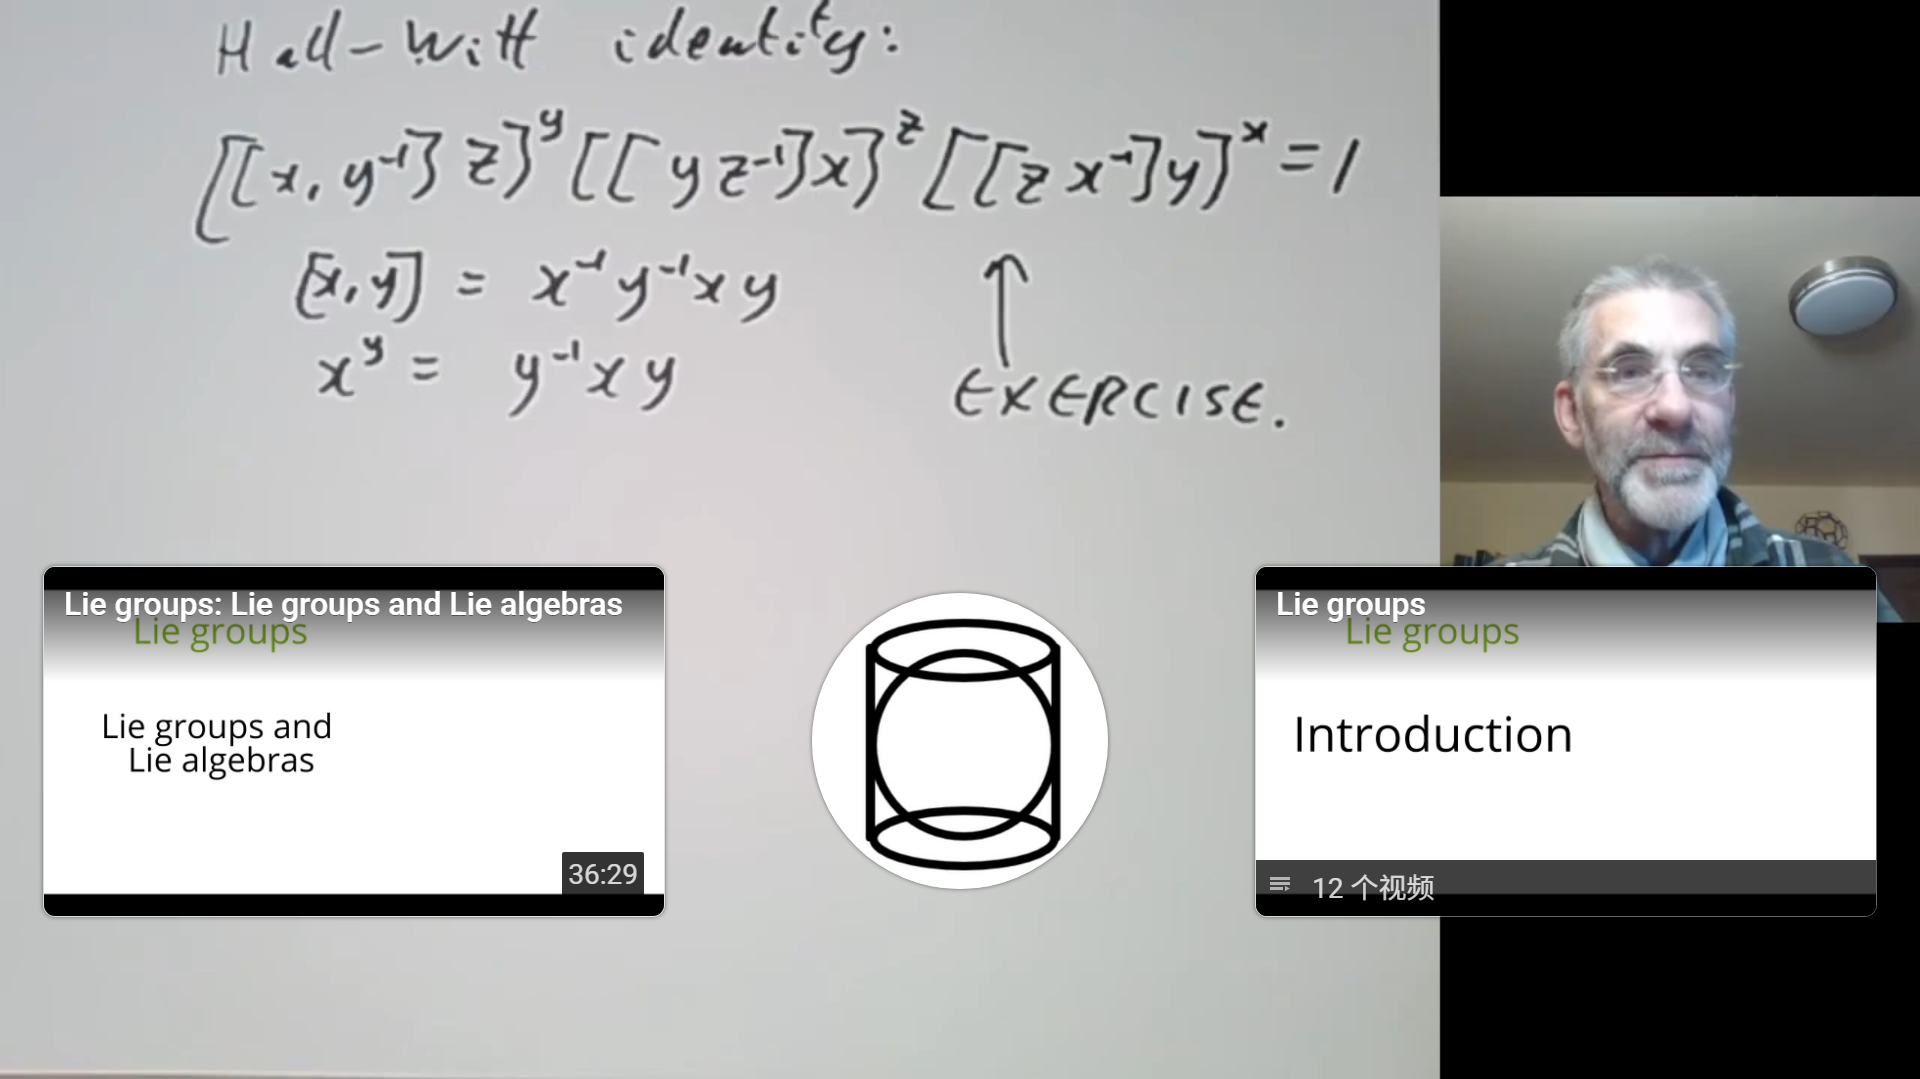 Hall-Witt identity:
[[x, y⁻¹] z]ʸ [[y z⁻¹] x]ᶻ [[z x⁻¹] y]ˣ = 1
[x, y] = x⁻¹ y⁻¹ x y
xʸ = y⁻¹ x y
↑
EXERCISE.
Lie groups: Lie groups and Lie algebras
Lie groups
Lie groups and
Lie algebras
36:29
Lie groups
Lie groups
Introduction
12 个视频